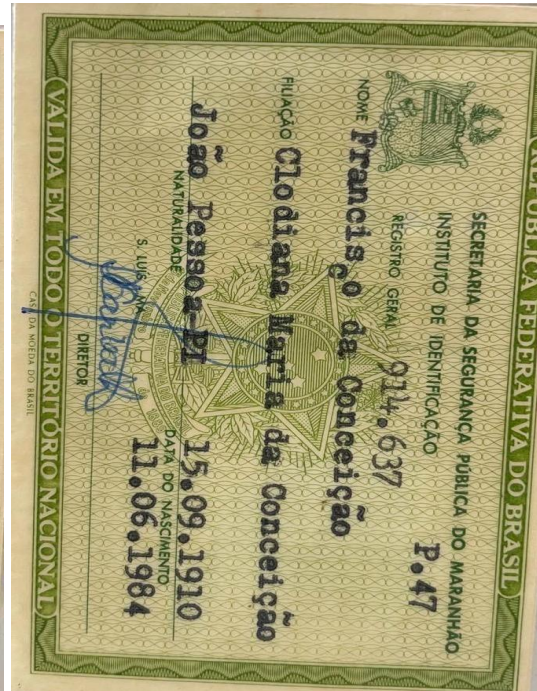 REPÚBLICA FEDERATIVA DO BRASIL
SECRETARIA DA SEGURANÇA PÚBLICA DO MARANHÃO
INSTITUTO DE IDENTIFICAÇÃO
P.47
REGISTRO GERAL 914.637
NOME Francisço da Conceição
FILIAÇÃO Clodiana Maria da Conceição
João Pessoa-PI 15.09.1910
NATURALIDADE DATA DO NASCIMENTO
S. LUÍS, MA 11.06.1984
DIRETOR
VALIDA EM TODO O TERRITÓRIO NACIONAL
CASA DA MOEDA DO BRASIL